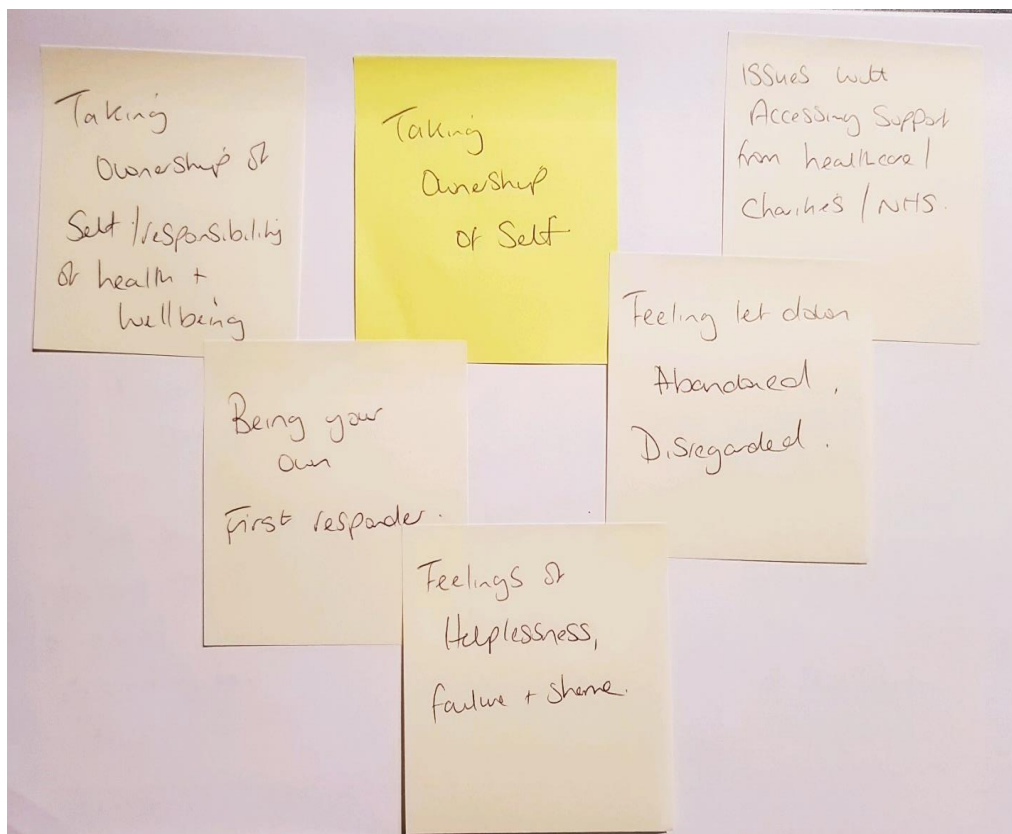 Taking
Ownership of
Self/responsibility
of health +
Wellbeing
Taking
Ownership
of Self.
Issues with
Accessing Support
from healthcare/
Charities/NHS.
Being your
own
First responder.
Feeling let down
Abandoned,
Disregarded.
Feelings of
Helplessness,
failure + shame.